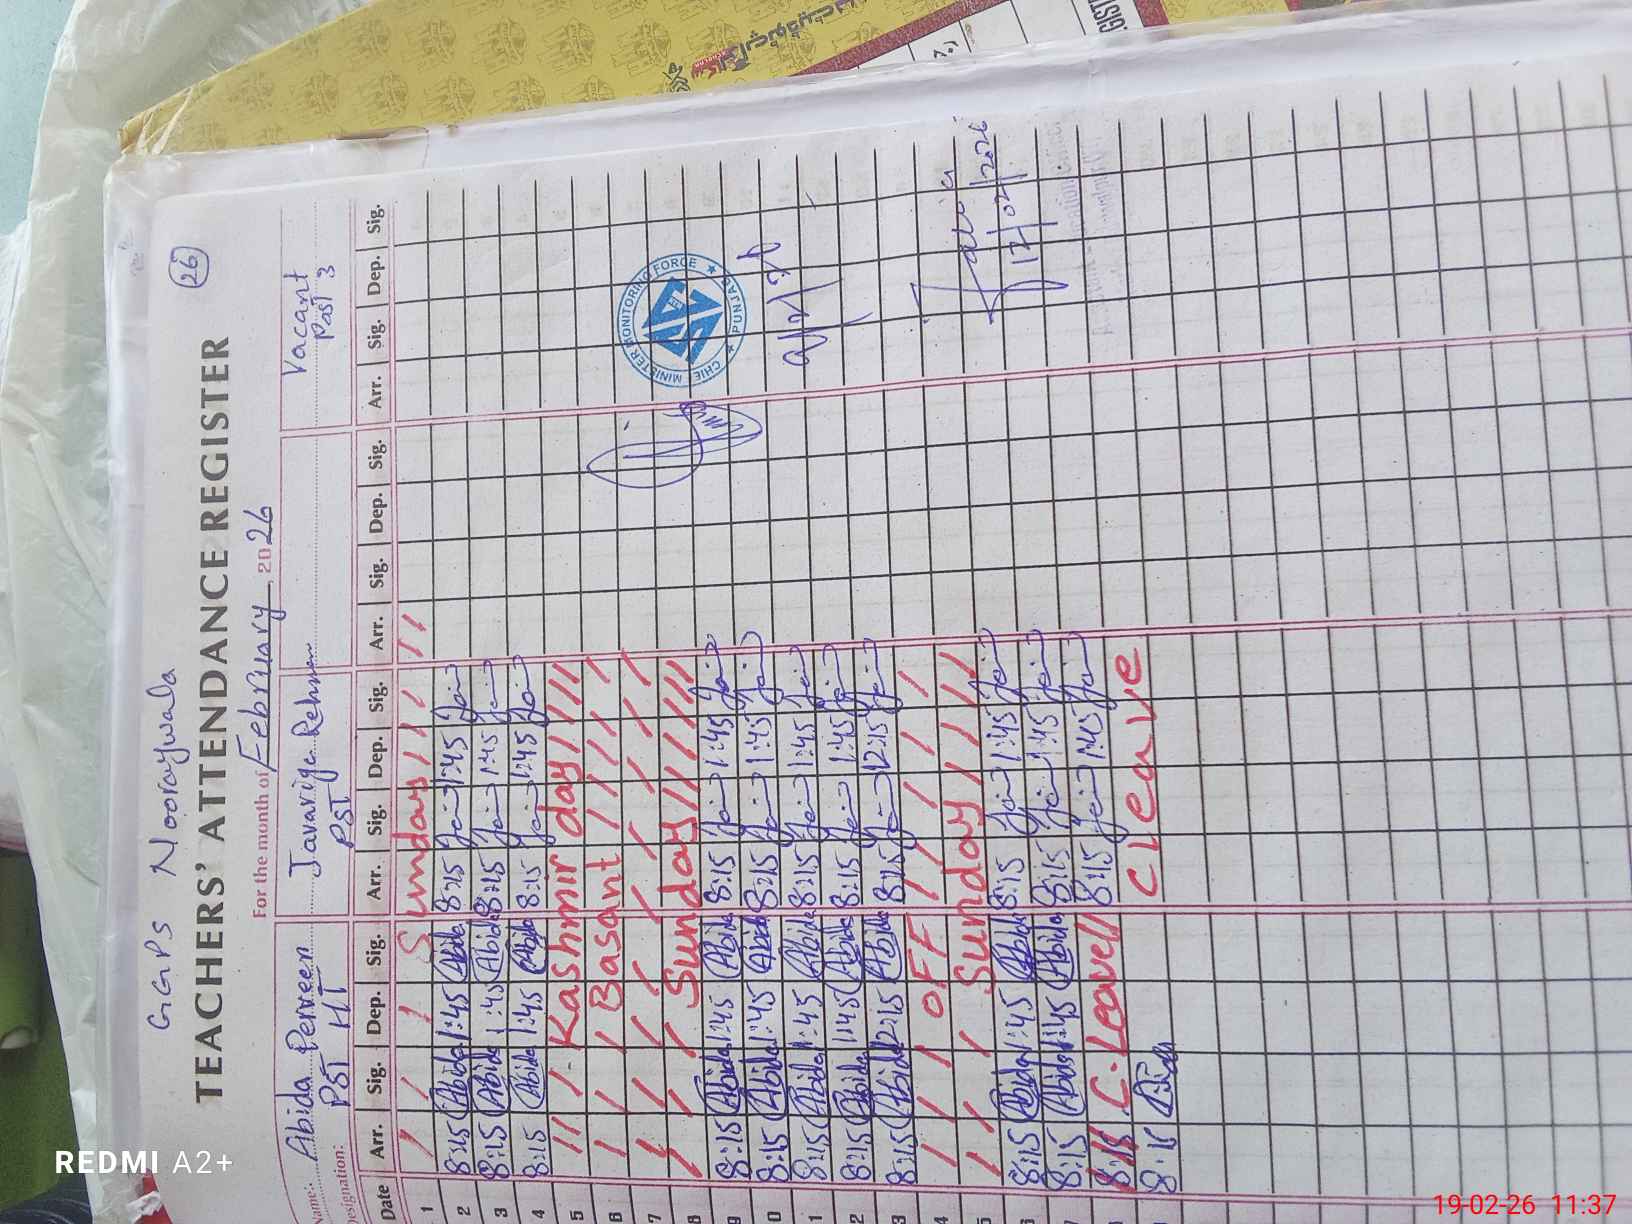 26
GGPS Nooraywala
TEACHERS' ATTENDANCE REGISTER
For the month of February 2026
Name: Abida Perveen Javaria Rehman Vacant
Designation: PST HT PST Post 3
Date Arr. Sig. Dep. Sig. Arr. Sig. Dep. Sig. Arr. Sig. Dep. Sig. Arr. Sig. Dep. Sig.
1 Sunday
2 8:15 Abida 1:45 Abida 8:15 1:45
3 8:15 Abida 1:45 Abida 8:15 1:45
4 8:15 Abida 1:45 Abida 8:15 1:45
5 Kashmir day
6 Basant
7
8 Sunday
9 8:15 Abida 1:45 Abida 8:15 1:45
0 8:15 Abida 1:45 Abida 8:15 1:45
1 8:15 Abida 1:45 Abida 8:15 1:45
2 8:15 Abida 1:45 Abida 8:15 1:45
3 8:15 Abida 12:15 Abida 8:15 12:15
4 OFF
5 Sunday
6 8:15 Abida 1:45 Abida 8:15 1:45
7 8:15 Abida 1:45 Abida 8:15 1:45
8:15 C. Leave 8:15 1:45
8:15 C Leave
CHIEF MINISTER MONITORING FORCE
PUNJAB
17/02/2026
REDMI A2+
19-02-26 11:37